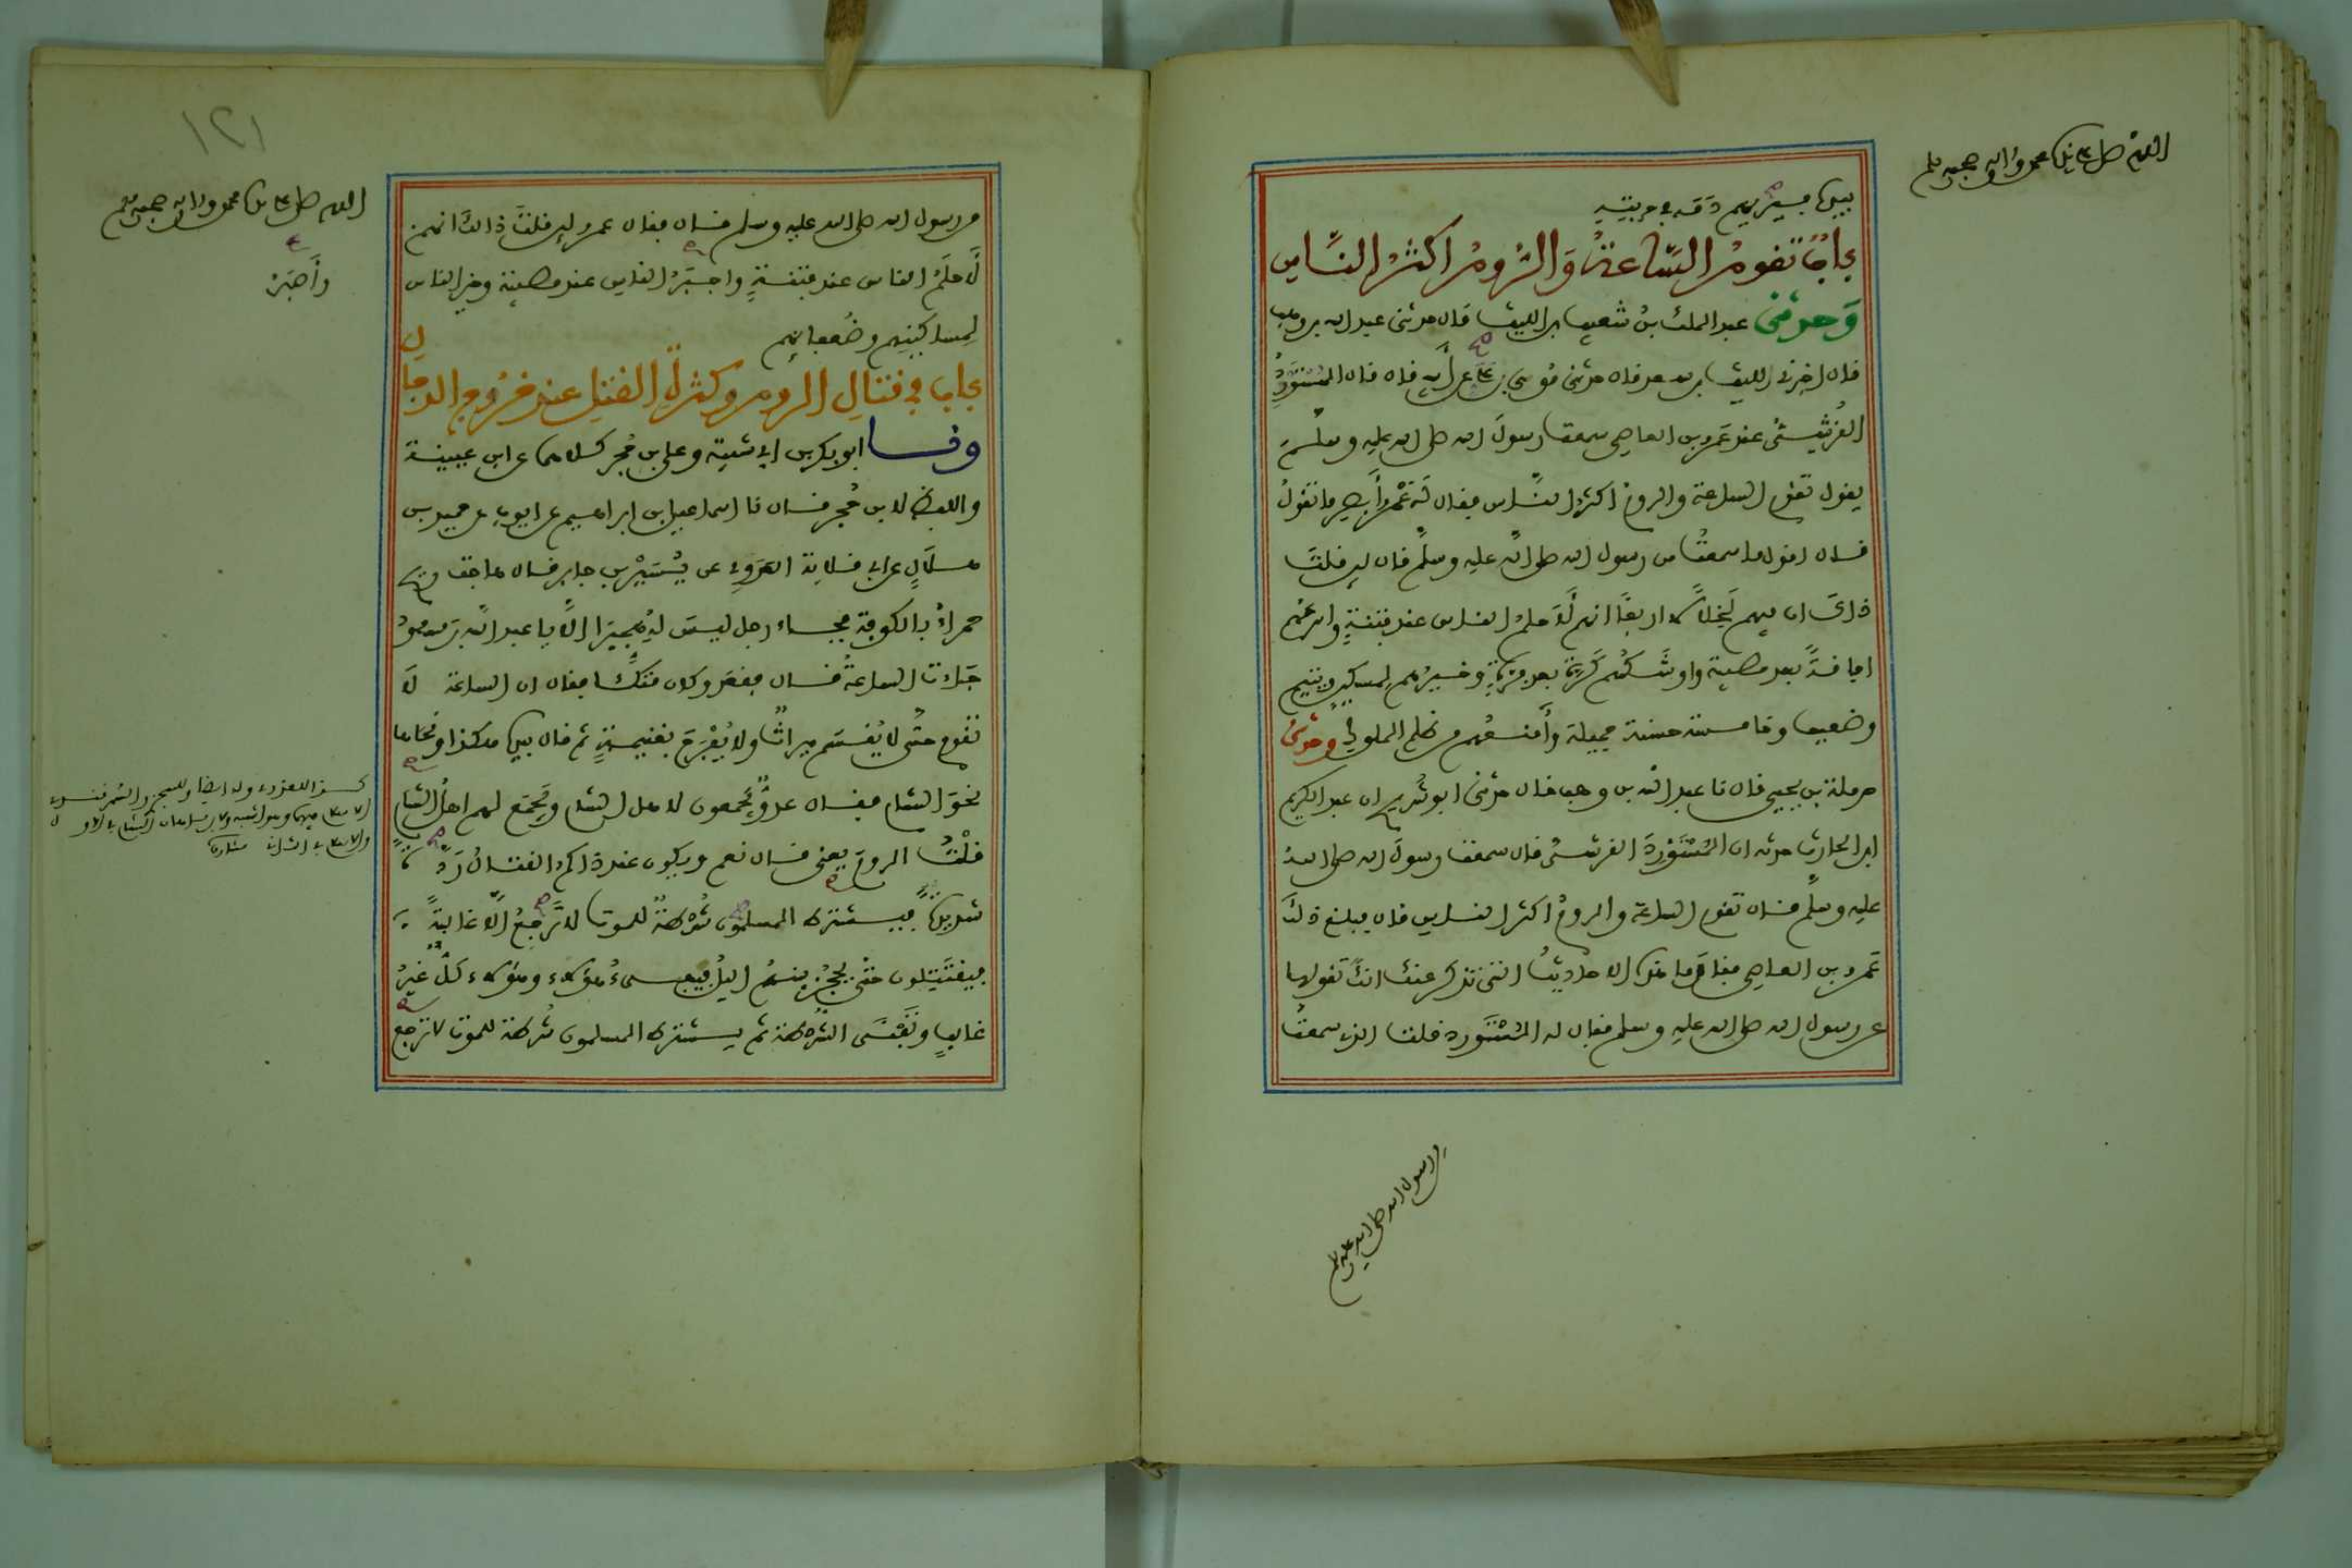 اللهم صل على سيدنا محمد وآله وصحبه وسلم
بينها فيسير بهم دمه في حربته
باب تقوم الساعة والروم أكثر الناس
وحدثني عبد الملك بن شعيب بن الليث قال حدثني عبد الله بن وهب
قال اخبرني الليث بن سعد قال حدثني موسى بن علي عن أبيه قال قال المستورد
القرشي عند عمرو بن العاصي سمعت رسول الله صلى الله عليه وسلم
يقول تقوم الساعة والروم أكثر الناس فقال له عمرو أبصر ما تقول
قال اقول ما سمعت من رسول الله صلى الله عليه وسلم قال لين قلت
ذلك ان فيهم لخصالا اربعا انهم لأحلم الناس عند فتنة واسرعهم
افاقة بعد مصيبة واوشكهم كرة بعد فرة وخيرهم لمسكين ويتيم
وضعيف وخامسة حسنة جميلة وأمنعهم من ظلم الملوك وحدثني
حرملة بن يحيى قال نا عبد الله بن وهب قال حدثني ابو شريح ان عبد الكريم
ابن الحارث حدثه ان المستورد القرشي قال سمعت رسول الله صلى الله
عليه وسلم قال تقوم الساعة والروم أكثر الناس قال فبلغ ذلك
عمرو بن العاصي فقال ما هذه الاحاديث التي تذكر عنك انك تقولها
عن رسول الله صلى الله عليه وسلم فقال له المستورد قلت الذي سمعت
من رسول الله صلى الله عليه وسلم
١٢١
اللهم صل على سيدنا محمد وآله وصحبه وسلم
من رسول الله صلى الله عليه وسلم قال فقال عمرو لين قلت ذلك انهم
لأحلم الناس عند فتنة واجبر الناس عند مصيبة وخير الناس
وأصبر
لمساكينهم وضعفائهم
باب في قتال الروم وكثرة القتل عند خروج الدجال
ونا ابو بكر بن ابي شيبة وعلي بن حجر كلاهما عن ابن علية
واللفظ لابن حجر قال نا اسماعيل بن ابراهيم عن ايوب عن حميد بن
هلال عن ابي قتادة العدوي عن يسير بن جابر قال هاجت ريح
حمراء بالكوفة فجاء رجل ليس له هجيرا الا يا عبد الله بن مسعود
جاءت الساعة قال فقعد وكان متكئا فقال ان الساعة لا
تقوم حتى لا يقسم ميراث ولا يفرح بغنيمة ثم قال بيده هكذا ونحاها
نحو الشام فقال عدو يجمعون لاهل الشام ويجمع لهم اهل الشام
قلت الروم يعني قال نعم ويكون عند ذاكم القتال ردة
شديدة فيشترط المسلمون شرطة للموت لا ترجع الا غالبة
فيقتتلون حتى يحجز بينهم الليل فيفيء هؤلاء وهؤلاء كل غير
غالب وتفنى الشرطة ثم يشترط المسلمون شرطة للموت لا ترجع